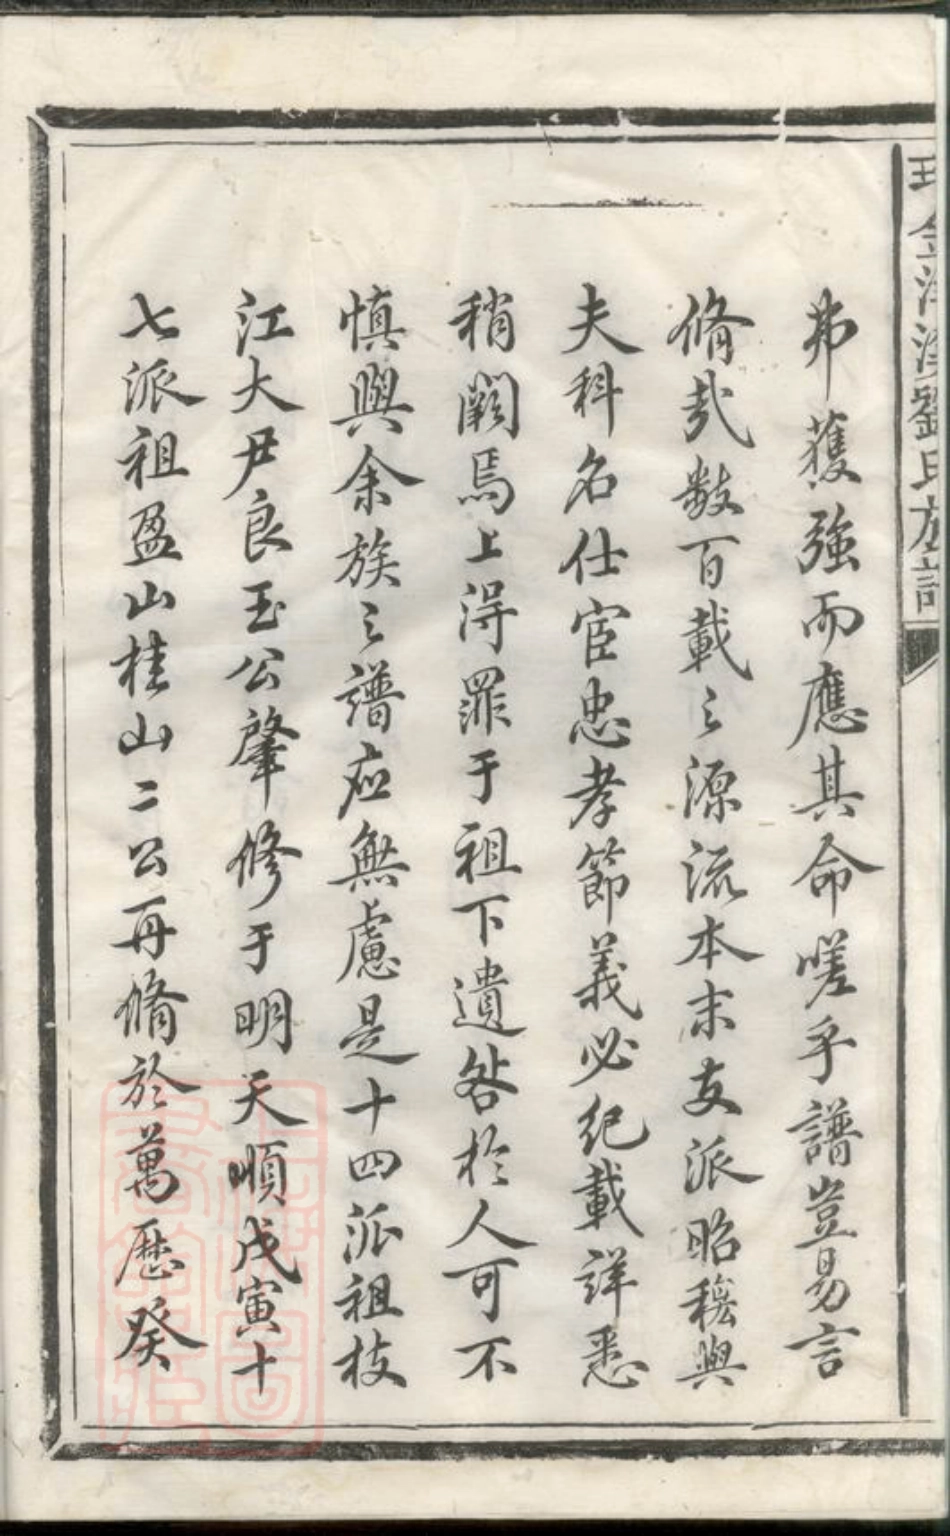 劉氏族譜
弗獲強而應其命嗟乎譜豈易言
脩哉数百載之源流本末支派昭穆與
夫科名仕宦忠孝節義必紀載詳悉
稍闕焉上得罪于祖下遺咎於人可不
慎與余族之譜應無慮是十四派祖枝
江大尹良玉公肇修于明天順戊寅十
七派祖盈山桂山二公再脩於萬歷癸
上海圖書館藏